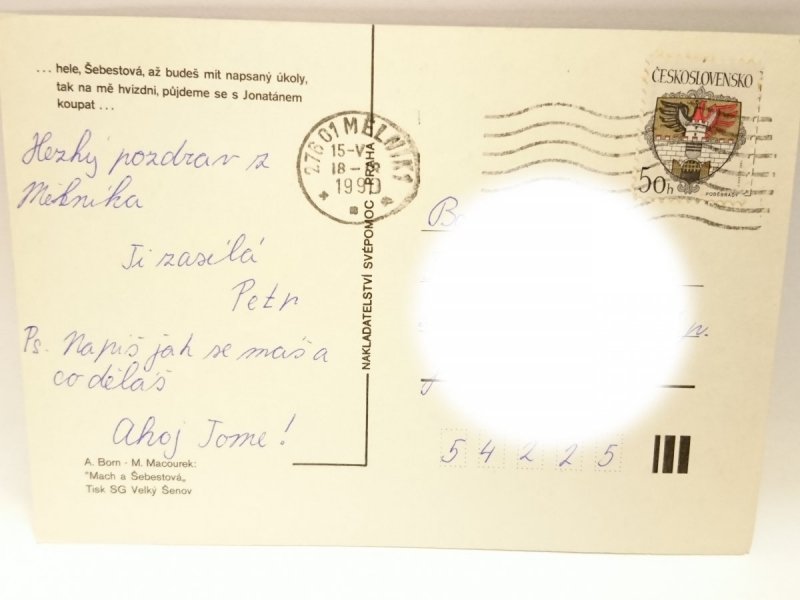 ... hele, Šebestová, až budeš mít napsaný úkoly,
tak na mě hvizdni, půjdeme se s Jonatánem
koupat ...
Hezký pozdrav z
Mělníka
Ti zasílá
Petr
Ps. Napiš jak se máš a
co děláš
Ahoj Tome!
A. Born - M. Macourek:
"Mach a Šebestová„
Tisk SG Velký Šenov
NAKLADATELSTVÍ SVÉPOMOC PRAHA
276 01 MĚLNÍK 1
15-V
18-
1990
ČESKOSLOVENSKO
50h
PODĚBRADY
54225